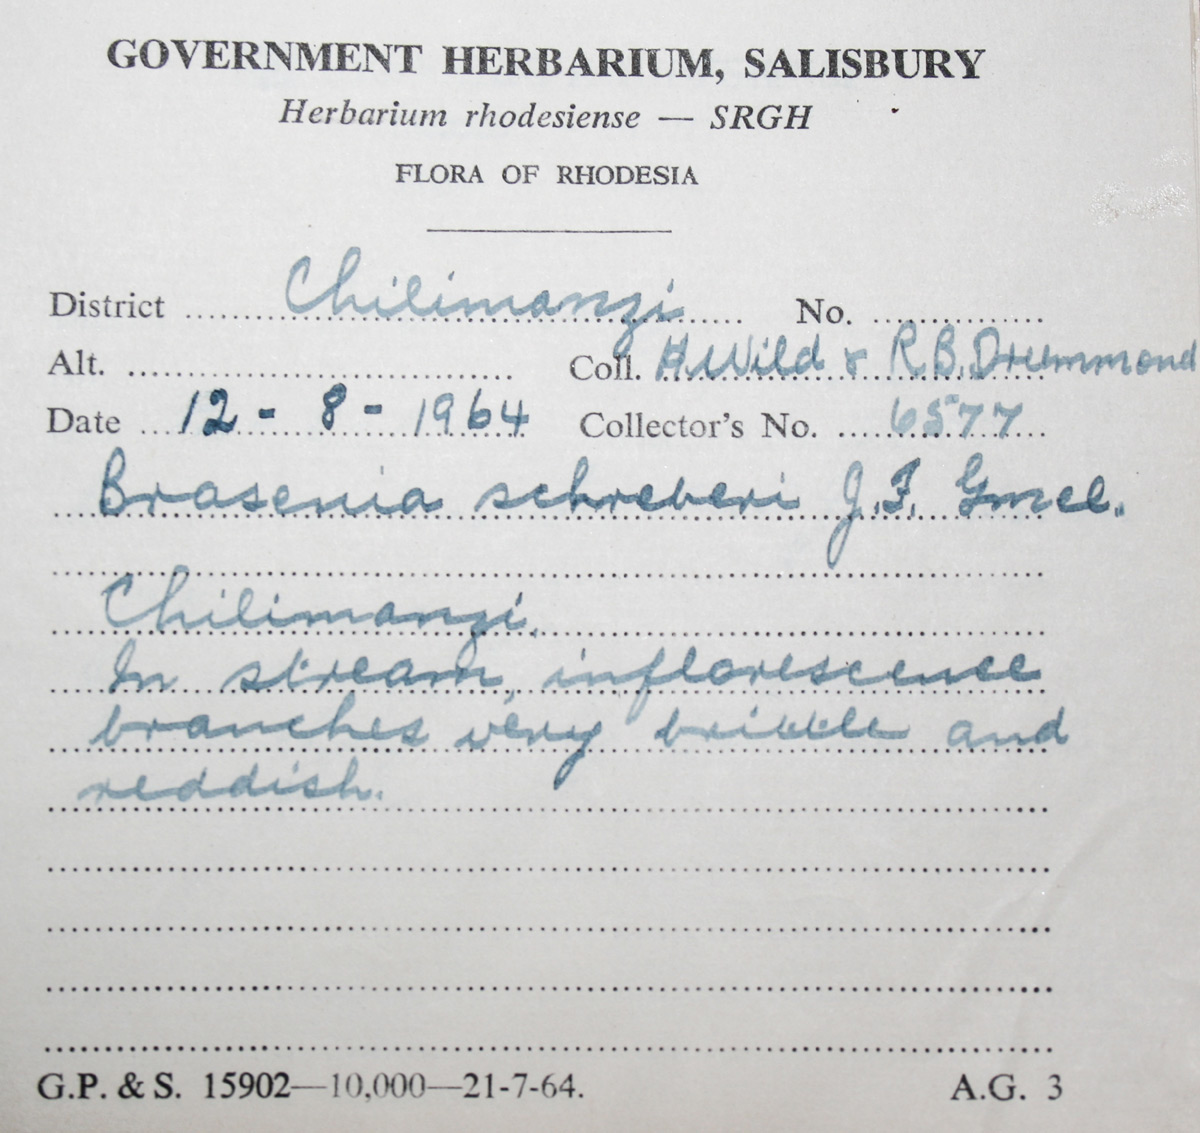 GOVERNMENT HERBARIUM, SALISBURY
Herbarium rhodesiense — SRGH
FLORA OF RHODESIA
District Chilimanzi No.
Alt. Coll. H. Wild & R.B. Drummond
Date 12 - 8 - 1964 Collector's No. 6577
Brasenia schreberi J.F. Gmel.
Chilimanzi.
In stream, inflorescence
branches very brittle and
reddish.
G.P. & S. 15902—10,000—21-7-64. A.G. 3